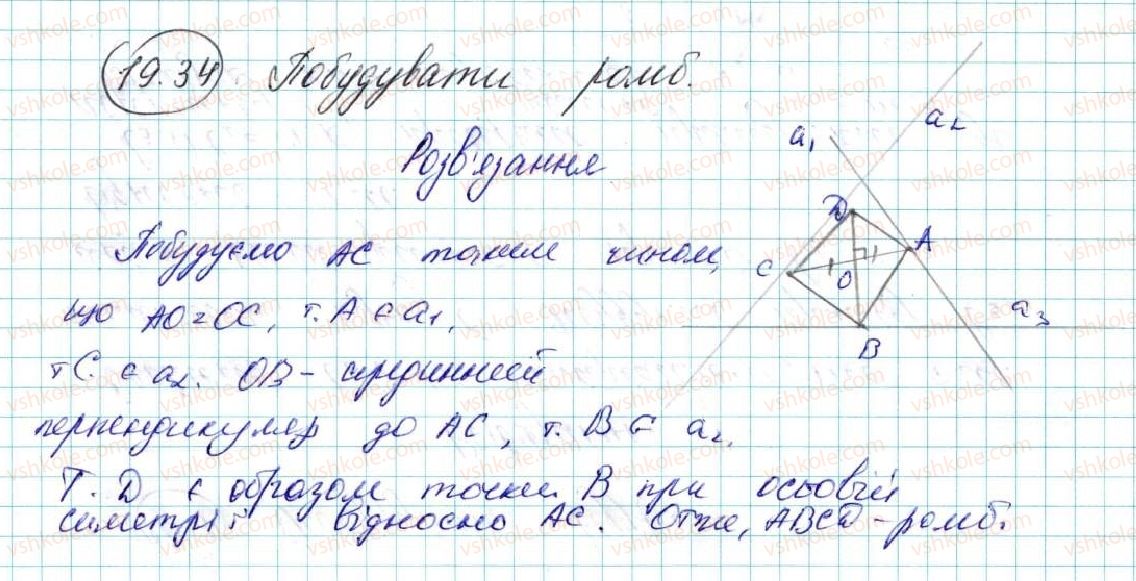 19.34 Побудувати ромб.
Розв'язання
Побудуємо AC таким чином,
що AO=OC, т. A ∈ a₁,
т C. ∈ a₂. OB - серединний
перпендикуляр до AC, т. B ∈ a₂.
Т. D є образом точки B при осьовій
симетрії відносно AC. Отже, ABCD - ромб.
a₁
a₂
D
A
C
O
a₃
B